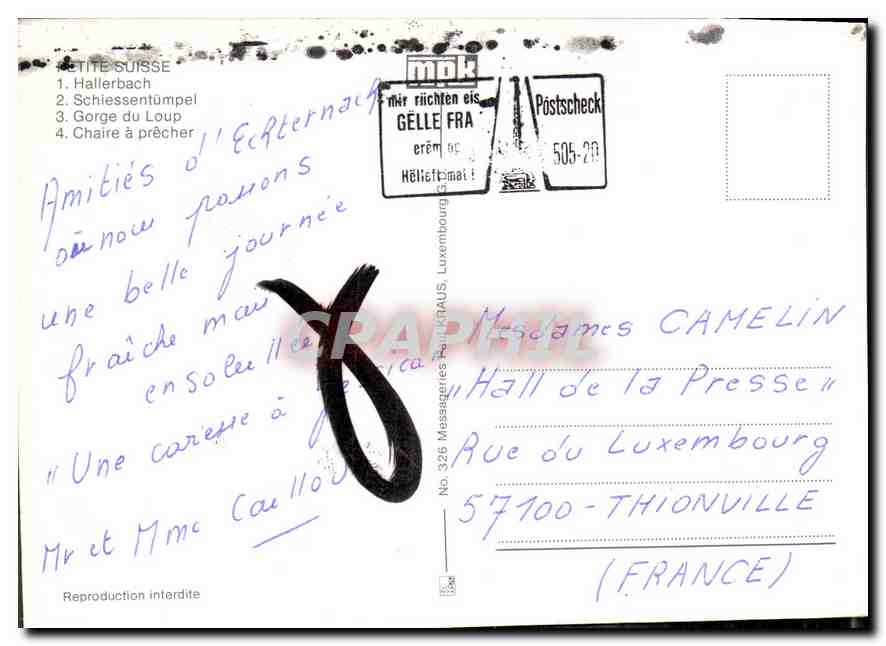 PETITE SUISSE
1. Hallerbach
2. Schiessentümpel
3. Gorge du Loup
4. Chaire à prêcher
Amitiés d'Echternach
où nous passons
une belle journée
fraîche mais
ensoleillée
"Une caresse à Jessica"
Mr et Mme Caillou
Reproduction interdite
mpk
mir riichten eis
GËLLE FRA
erëm op
Hëlleft mat !
Postscheck
505-20
No. 326 Messageries Paul KRAUS, Luxembourg
CPAPHIL
Mesdames CAMELIN
"Hall de la Presse"
Rue du Luxembourg
57100 - THIONVILLE
(FRANCE)